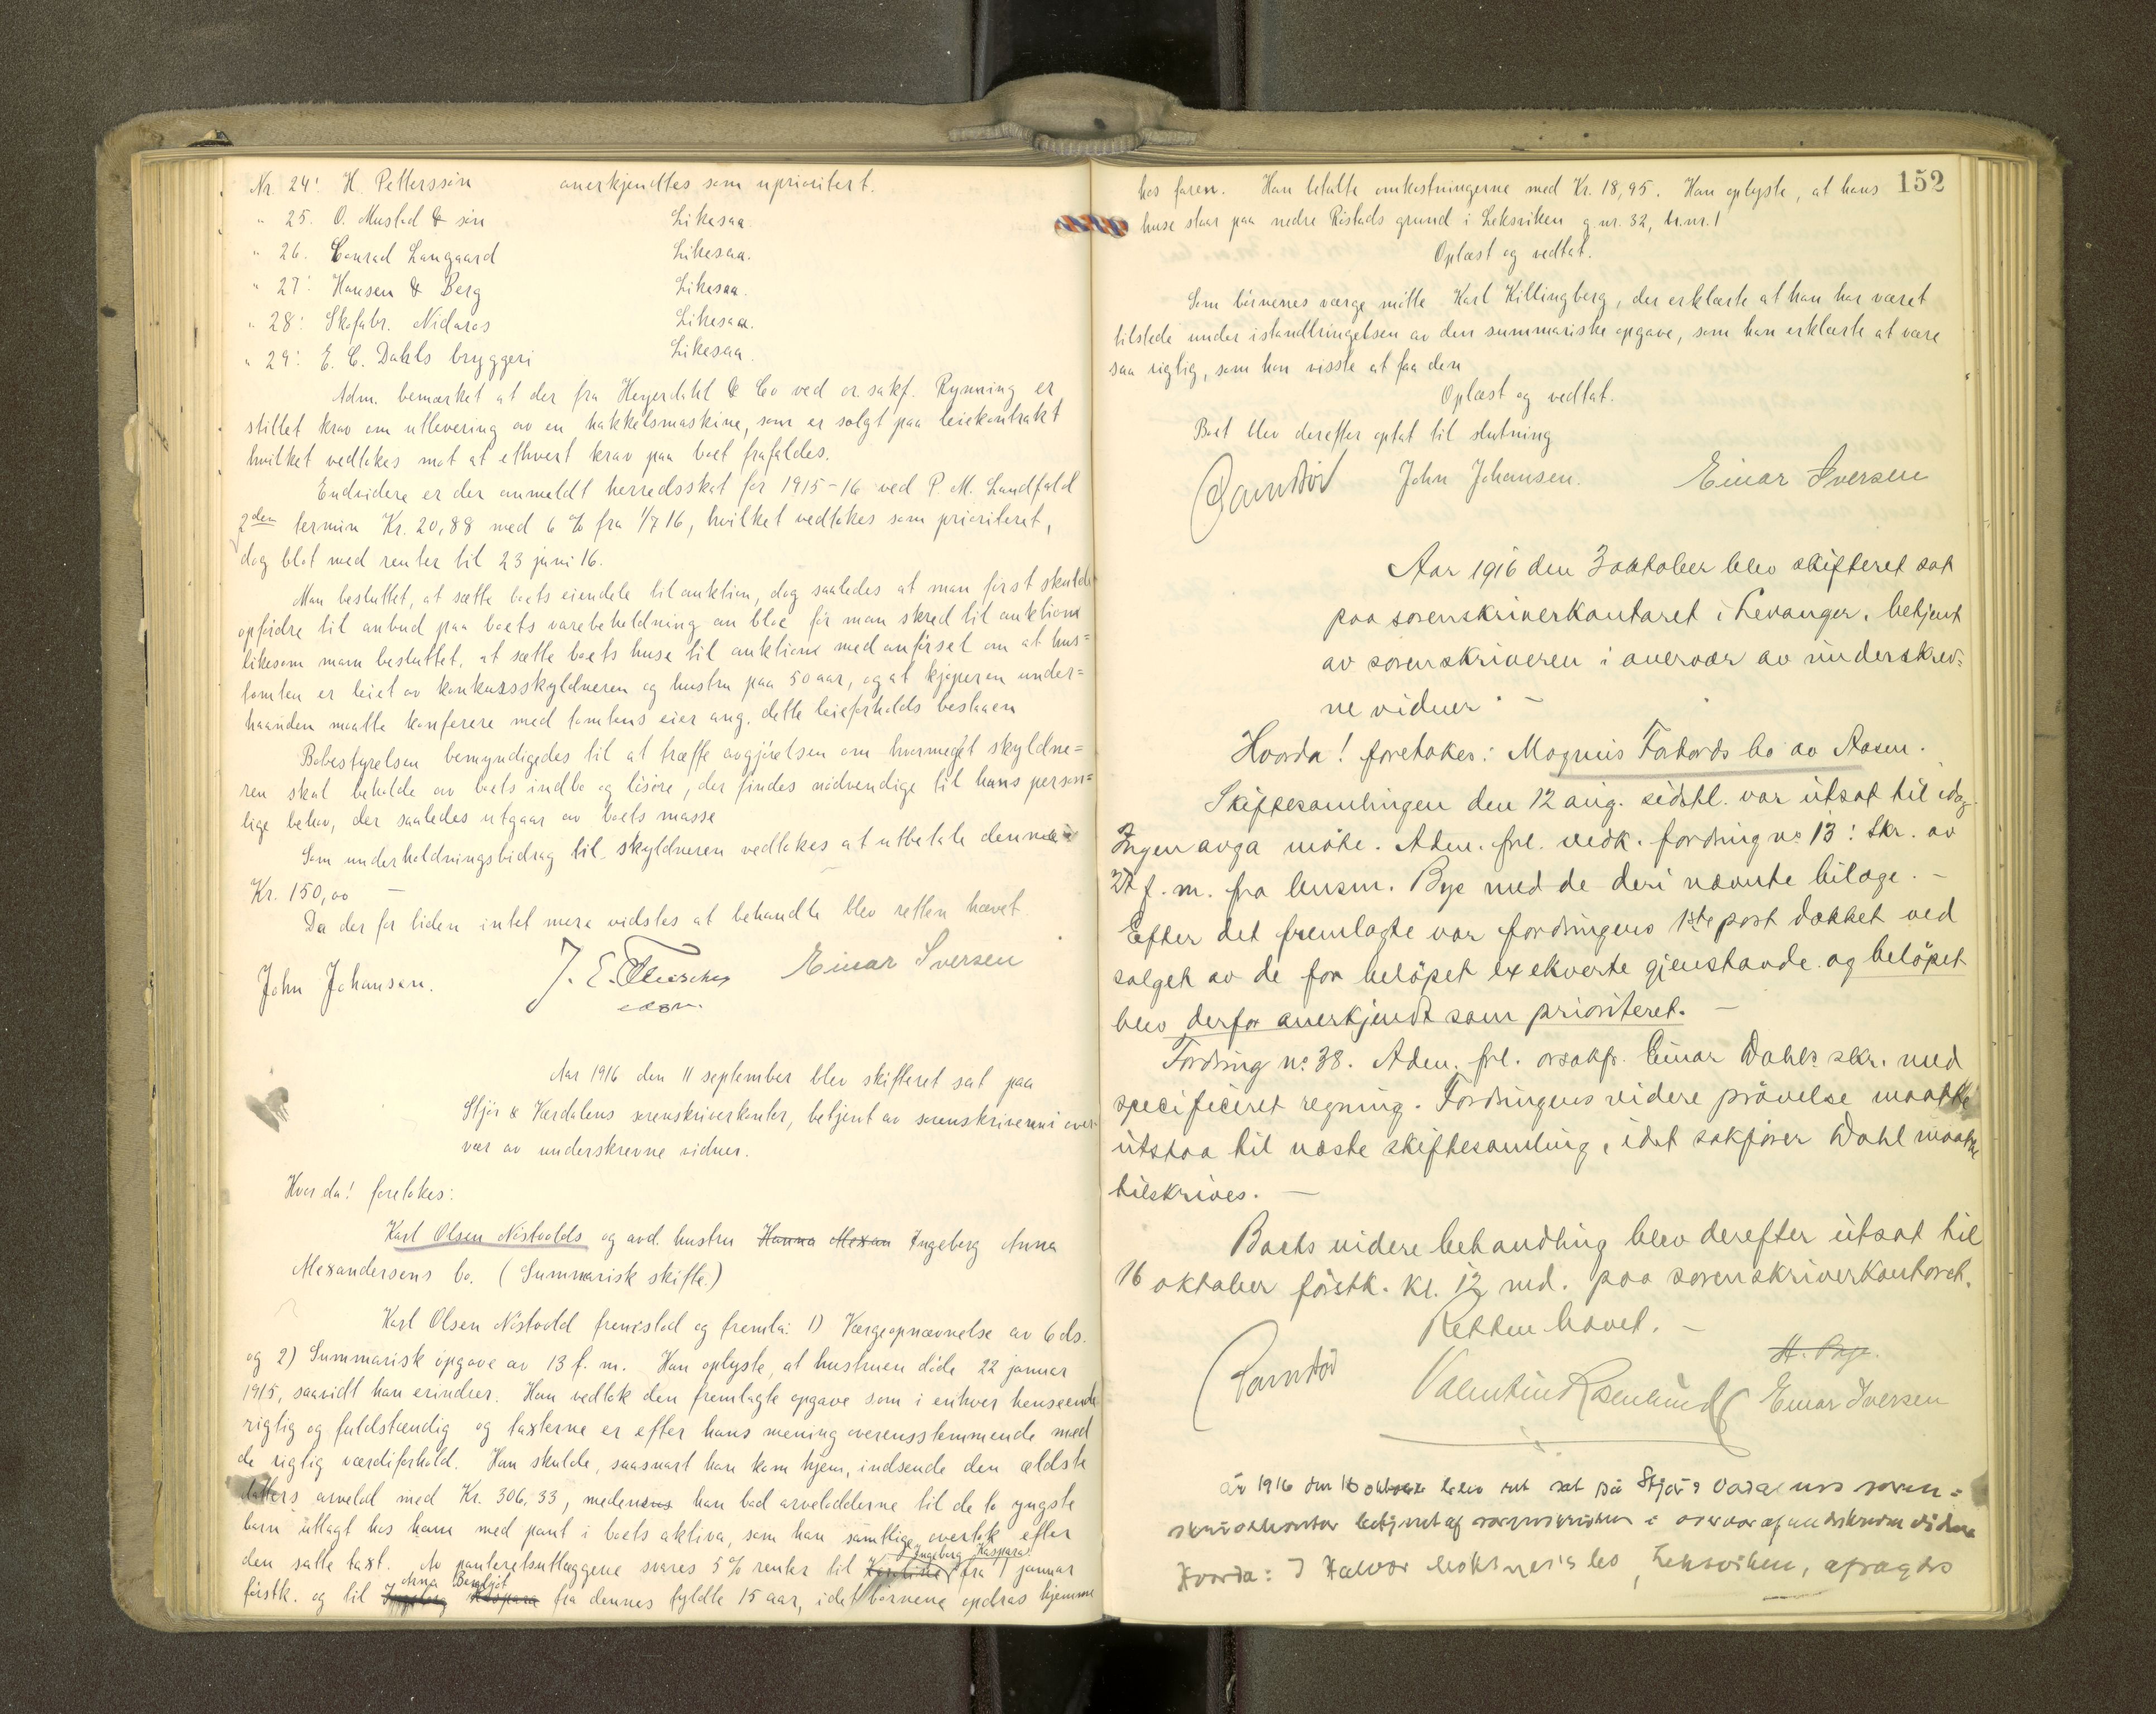 Nr. 24: H. Petterssøn anerkjendtes som uprioritert.
" 25. O. Mustad & søn Likesaa.
" 26. Conrad Langaard Likesaa.
" 27: Hansen & Berg Likesaa.
" 28: Skofabr. Nidaros Likesaa.
" 29: E. C. Dahls bryggeri Likesaa.
Adm. bemærket at der fra Heyerdahl & Co ved or. sakf. Rynning er
stillet krav om utlevering av en hakkelsmaskine, som er solgt paa leiekontrakt
hvilket vedtokes mot at ethvert krav paa boet frafaldes.
Endvidere er der anmeldt herredsskat for 1915-16 ved P. M. Landfald
2den termin Kr. 20,88 med 6 % fra 1/7 16, hvilket vedtokes som prioriteret,
dog blot med renter til 23 juni 16.
Man besluttet, at sætte boets eiendele til auktion, dog saaledes at man først skulde
opfordre til anbud paa boets varebeholdning en bloc før man skred til auktion
likesom man besluttet, at sætte boets huse til auktion med anførsel om at hus=
tomten er leiet av konkursskyldneren og hustru paa 50 aar, og at kjøperen under=
haanden maatte konferere med tomtens eier ang. dette leieforholds bestaaen
Bobestyrelsen bemyndigedes til at træffe avgjørelsen om hvormeget skyldne=
ren skal beholde av boets indbo og løsøre, der findes nødvendige til hans person=
lige behov, der saaledes utgaar av boets masse
Som underholdningsbidrag til skyldneren vedtokes at utbetale denne
Kr. 150,00 —
Da der for tiden intet mere vidstes at behandle blev retten hævet.
John Johansen. J. E. Einar Iversen
Aar 1916 den 11 september blev skifteret sat paa
Stjør & Værdalens sorenskriverkontor, betjent av sorenskriveren i over
vær av underskrevne vidner.
Hvorda! foretokes:
Karl Olsen Nistvolds og avd. hustru Hanna Alexan Ingeborg Anna
Alexandersens bo. (Summarisk skifte.)
Karl Olsen Nistvold fremstod og fremla: 1) Værgeopnævnelse av 6 ds.
og 2) Summarisk opgave av 13 f. m. Han oplyste, at hustruen døde 22 januar
1915, saavidt han erindrer. Han vedtok den fremlagte opgave som i enhver henseende
rigtig og fuldstændig og taxterne er efter hans mening overensstemmende med
de rigtig værdiforhold. Han skulde, saasnart han kom hjem, indsende den ældste
datters arvelod med Kr. 306,33, medens han bad arveloddene til de to yngste
barn utlagt hos ham med pant i boets aktiva, som han samtlige overtok efter
den satte taxt. Av panteretsutlæggene svares 5 % renter til Ingeborg Kaspara fra 1 januar
førstk. og til Anna Bergljot Ingeborg Kaspara fra dennes fyldte 15 aar, idet børnene opdras hjemme
152
hos faren. Han betalte omkostningerne med Kr. 18,95. Han oplyste, at hans
huse staar paa nedre Røstads grund i Leksviken g.nr. 32, b.nr. 1
Oplæst og vedtat.
Som børnenes værge møtte Karl Killingberg, der erklærte at han har været
tilstede under istandbringelsen av den summariske opgave, som han erklærte at være
saa rigtig, som han visste at faa den
Oplæst og vedtat.
Boet blev derefter optat til slutning
John Johansen. Einar Iversen
Aar 1916 den 3 oktober blev skifteret sat
paa sorenskriverkontoret i Levanger, betjent
av sorenskriveren i overvær av underskrev=
ne vidner. —
Hvorda! foretokes: Magnus Forbords bo av Aasen.
Skiftesamlingen den 12 aug. sidstl. var utsat til idag.
Ingen avga møte. Adm. frl. vedk. fordring no 13: Skr. av
27 f. m. fra lensm. Bye med de deri nævnte bilage. —
Efter det fremlagte var fordringens 1ste post dækket ved
salget av de for beløpet exekverte gjenstande og beløpet
blev derfor anerkjendt som prioriteret. —
Fordring no 38. Adm. frl. orsakf. Einar Dahls skr. med
specificeret regning. Fordringens videre prøvelse maatte
utstaa til næste skiftesamling, idet sakfører Dahl maatte
tilskrives. —
Boets videre behandling blev derefter utsat til
16 oktober førstk. kl. 12 md. paa sorenskriverkontoret.
Retten hævet. —
Valentin Rosenlund Einar Iversen
År 1916 den 16 oktober blev ret sat på Stjør & Værdalens soren=
skriverkontor betjent af sorenskriveren i overvær af underskrevne vidner
Hvorda: I Halvor bo, Leksviken, afsagdes